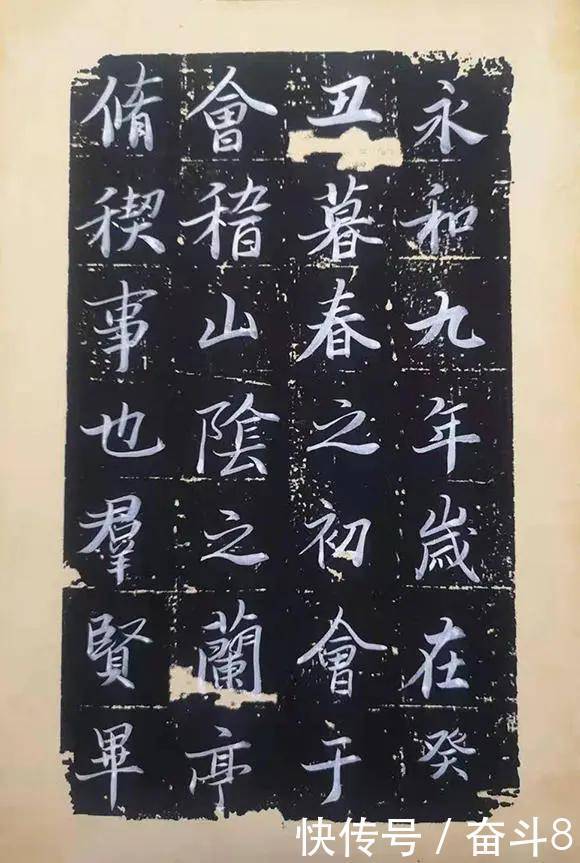 永和九年歲在癸
丑暮春之初會于
會稽山陰之蘭亭
脩稧事也羣賢畢
快传号/奋斗8